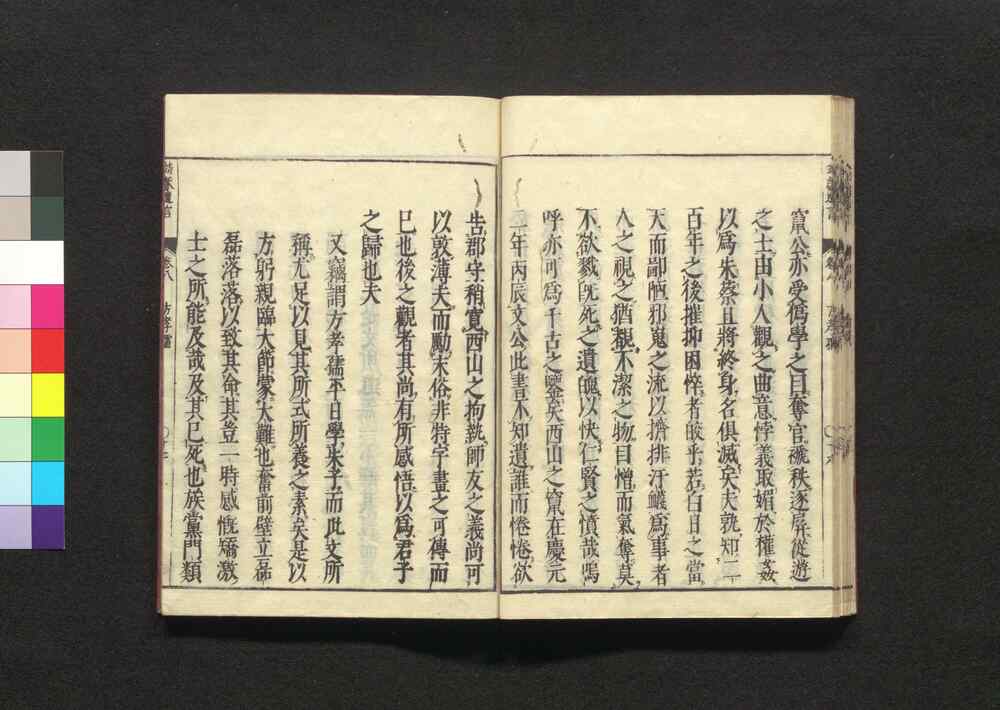 竄公亦受僞學之目奪官褫秩逐屏從遊
之士由小人觀之曲意悖義取媚於權姦
以爲朱蔡且將終身名俱滅矣夫孰知二
百年之後摧抑困悴者皎乎若白日之當
天而鄙陋邪嵬之流以擠排汙衊爲事者
人之視之猶覩不潔之物目憎而氣奪莫
不欲戮旣死之遺魄以快仁賢之憤哉嗚
呼亦可爲千古之鑒矣西山之竄在慶元
二年丙辰文公此書不知遺誰而惓惓欲
告郡守稍寬西山之拘執師友之義尚可
以敦薄夫而勵末俗非特字畫之可傳而
已也後之觀者其尚有所感悟以爲君子
之歸也夫
又竊謂方孝孺平日學朱子而此文所
稱尤足以見其所式所養之素矣是以
方躬親臨大節蒙大難也奮前壁立
磊磊落落以致其命其豈一時感慨矯激
士之所能及哉及其已死也族黨門類
卷八